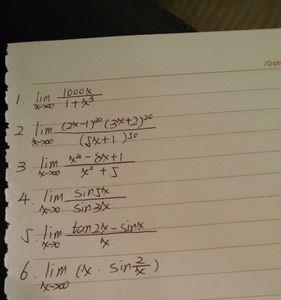 1. lim x→∞ 1000x / 1+x³
2 lim x→∞ (2x-1)³⁰ (3x+2)²⁰ / (5x+1)⁵⁰
3 lim x→∞ x⁴-8x+1 / x²+5
4. lim x→0 sin5x / sin3x
5. lim x→0 tan2x-sinx / x
6. lim x→∞ (x · sin 2/x)